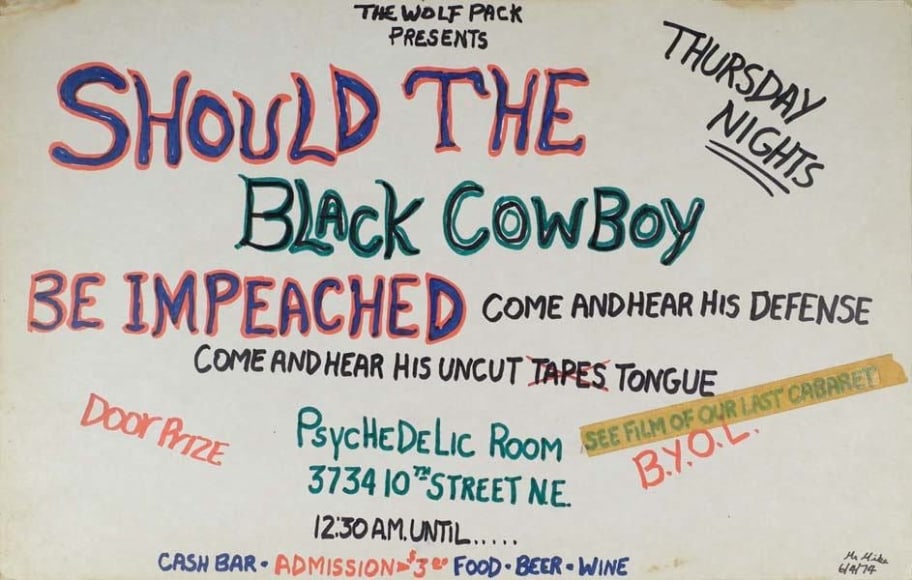 THE WOLF PACK
PRESENTS
THURSDAY
NIGHTS
SHOULD THE
BLACK COWBOY
BE IMPEACHED
COME AND HEAR HIS DEFENSE
COME AND HEAR HIS UNCUT TAPES TONGUE
DOOR PRIZE
SEE FILM OF OUR LAST CABARET
B.Y.O.L.
PSYCHEDELIC ROOM
3734 10TH STREET N.E.
12:30 A.M. UNTIL.....
CASH BAR • ADMISSION $3.00 FOOD • BEER • WINE
Mr Mike
6/4/74